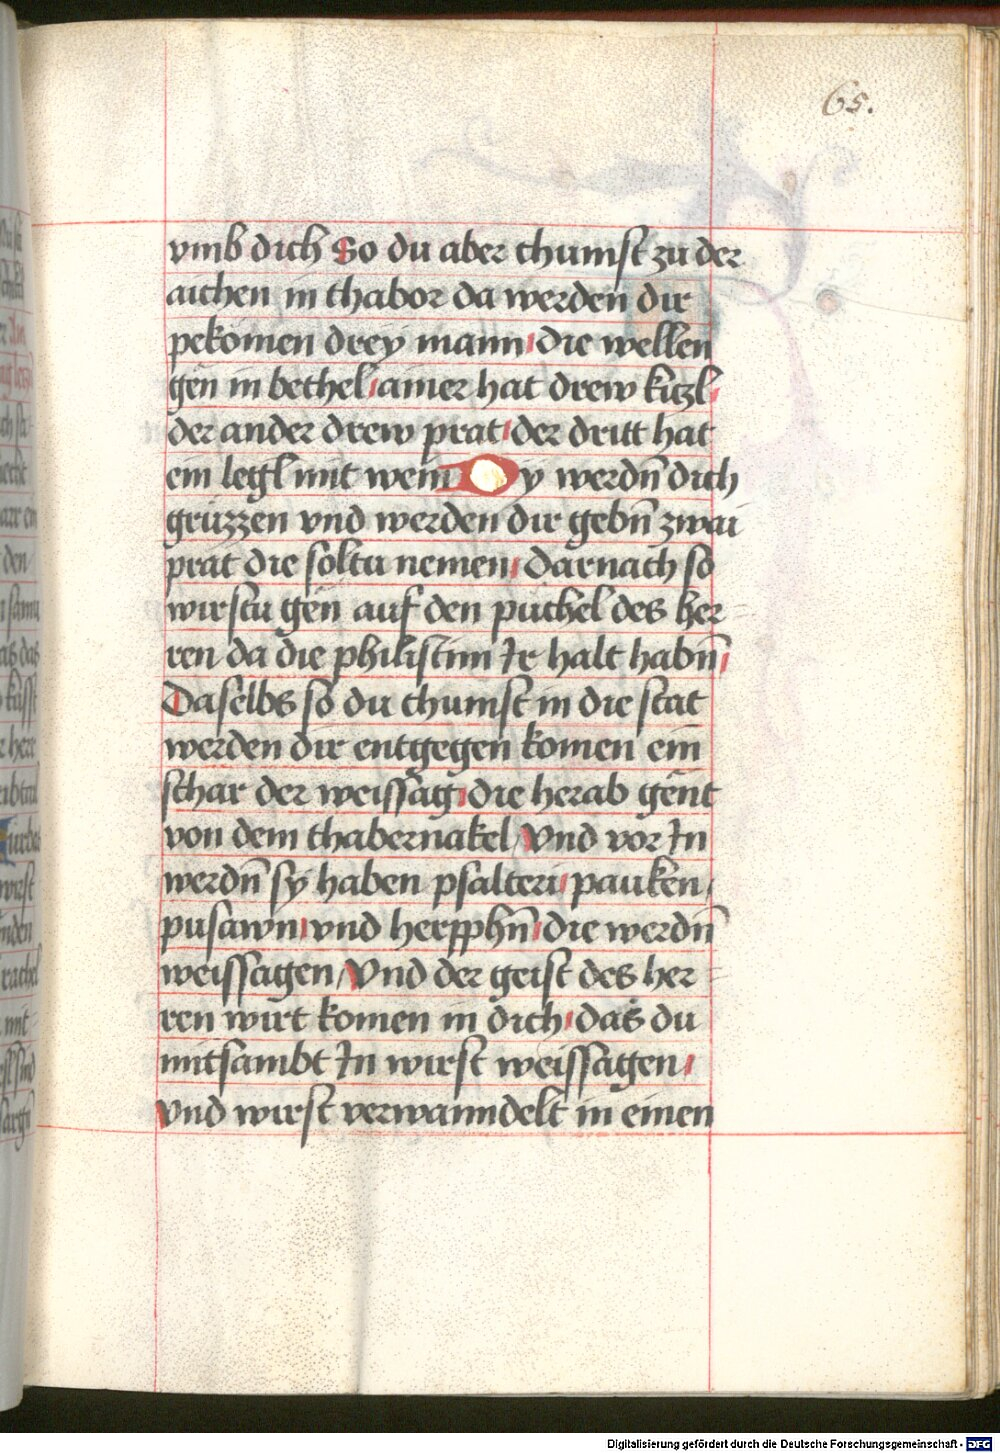 65.
vmb dich So du aber chumst zu der
aichen in thabor da werden dir
pekomen drey mann die wellen
gen in bethel ainer hat drew kizl
der ander drew prat der dritt hat
ein legl mit wein y werdn̄ dich
grüzzen vnd werden dir gebn̄ zwai
prat die soltu nemen Darnach so
wirstu gen auf den puchel des her=
ren da die philistim Ir halt habn̄
Daselbs so du chumst in die stat
werden dir entgegen komen ein
schar der weissag die herab gent
von dem thabernakel Vnd vor In
werdn̄ sy haben psalteri pauken
pusawn vnd herpphn̄ die werdn̄
weissagen Vnd der geist des her=
ren wirt komen in dich das du
mitsambt In wirst weissagen
Vnd wirst verwanndelt in einen
Digitalisierung gefördert durch die Deutsche Forschungsgemeinschaft - DFG